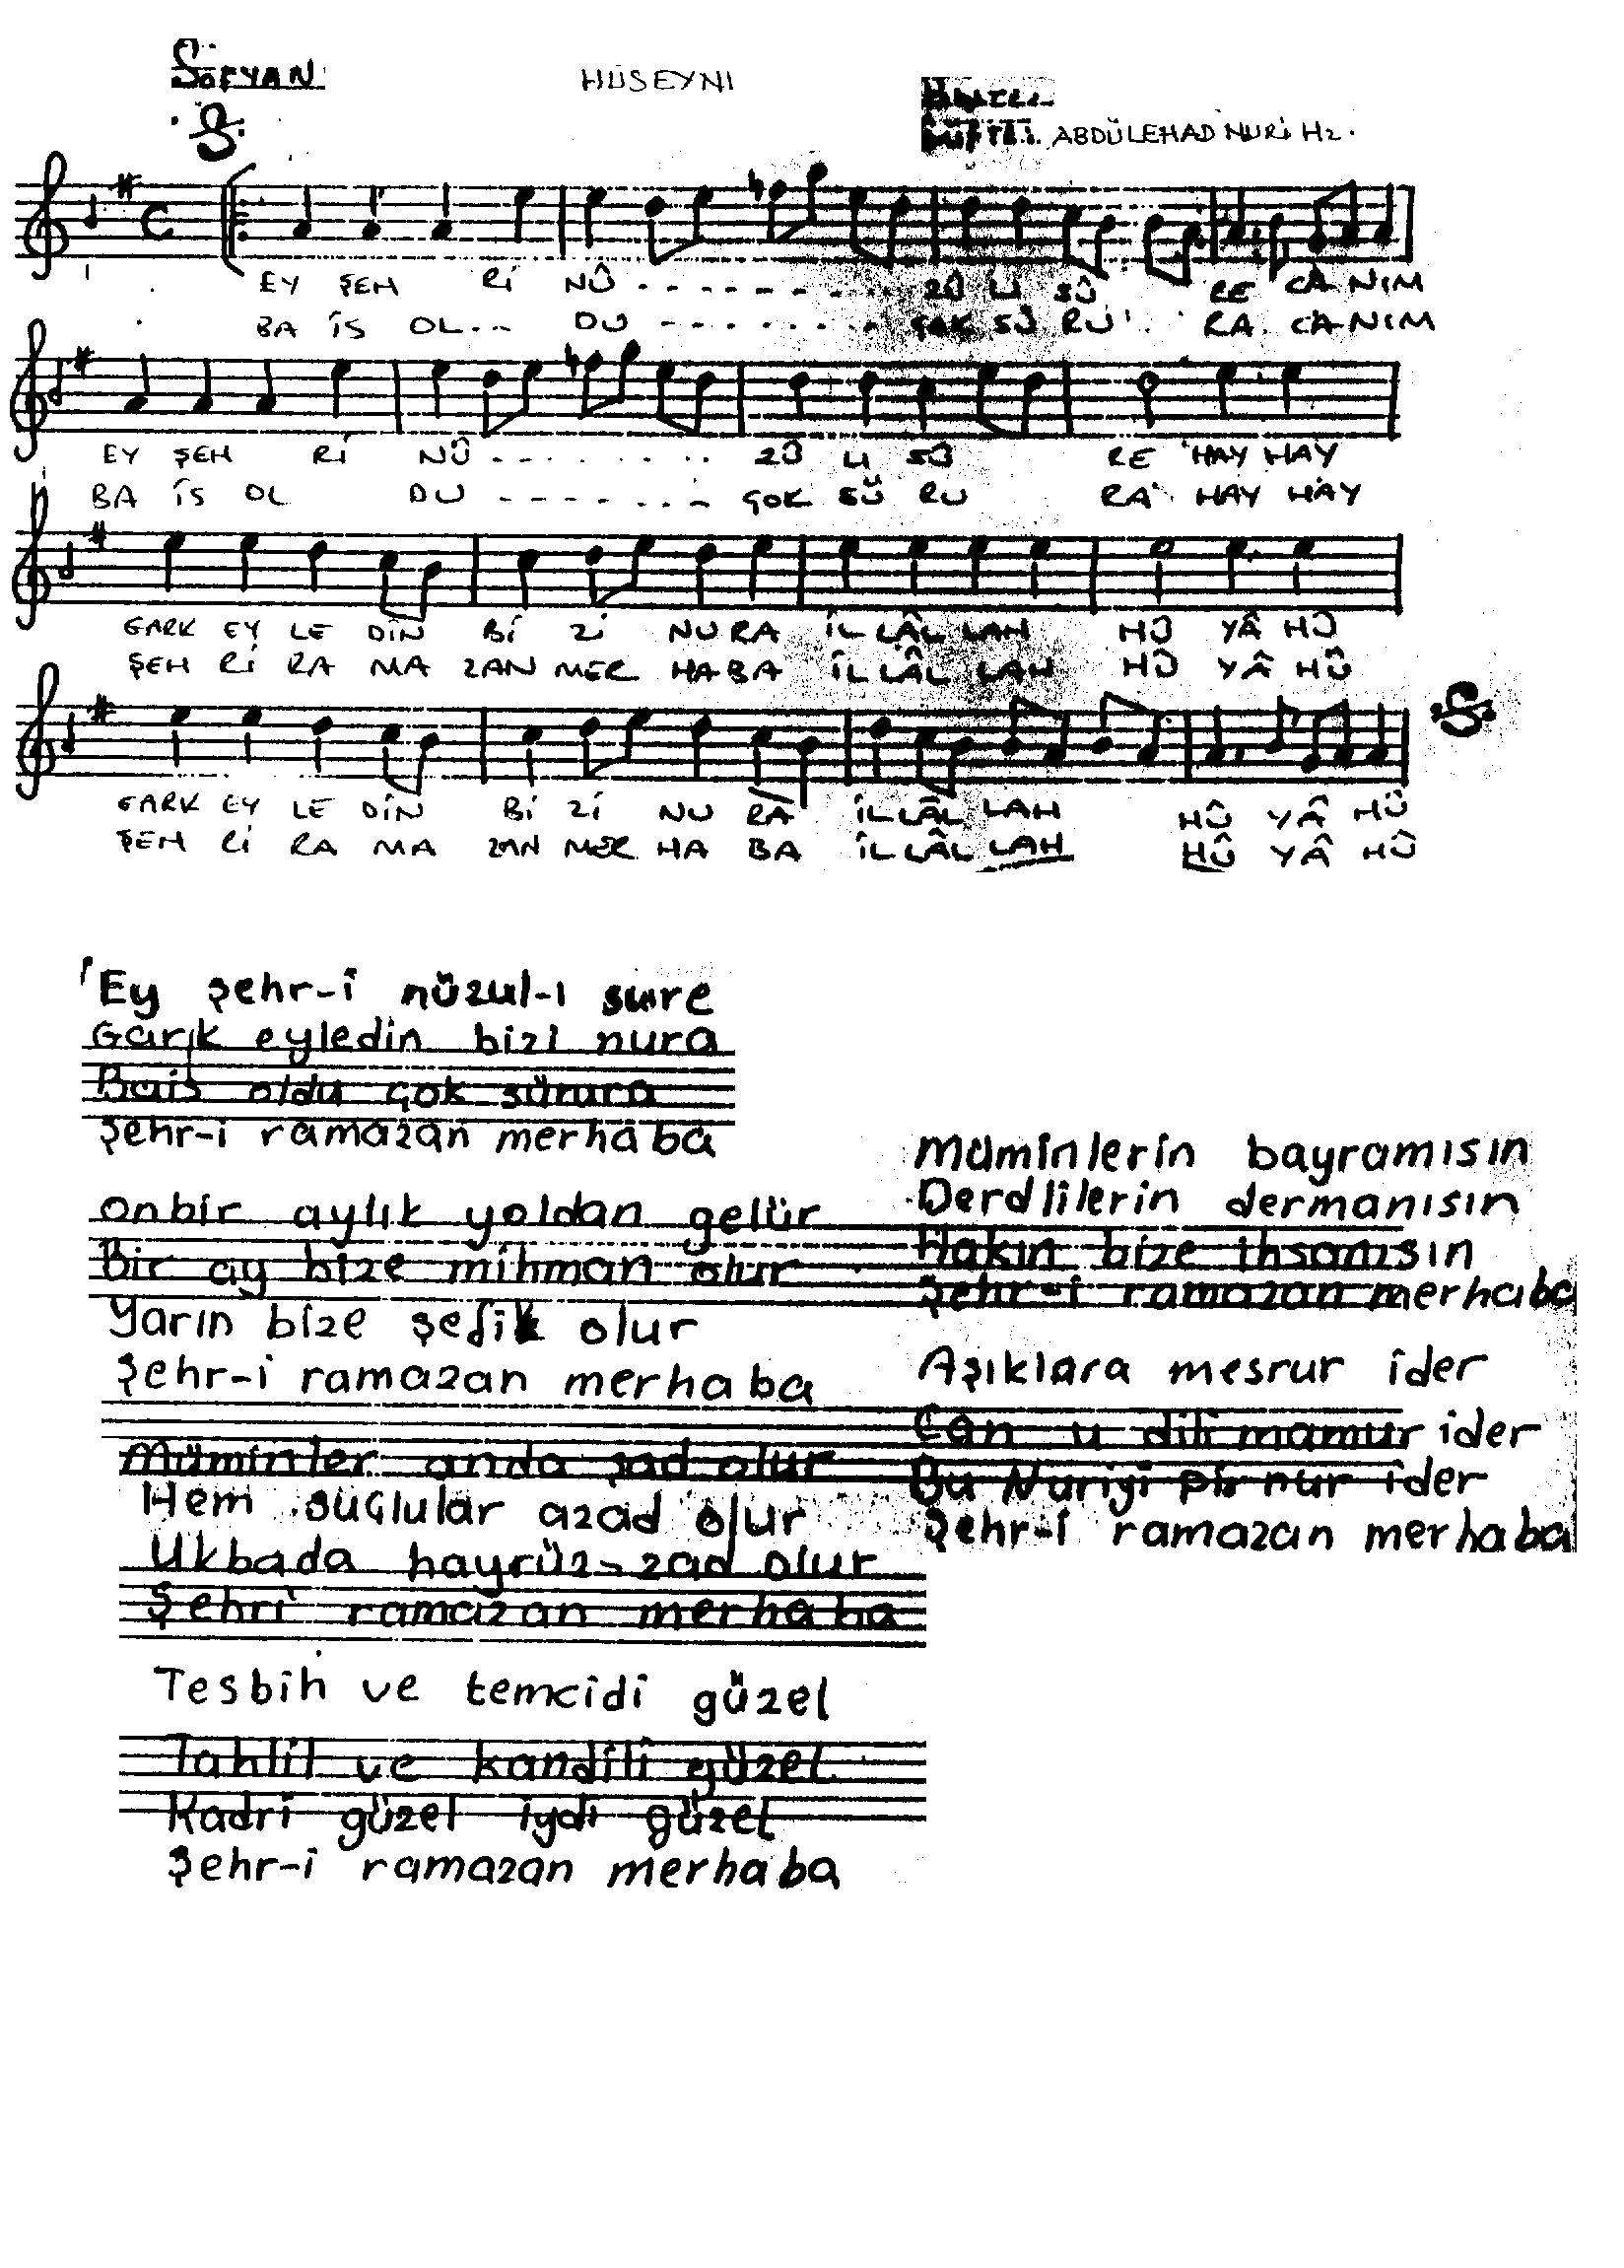 SOFYAN
HÜSEYNI
ABDÜLEHAD NURİ Hz.
EY ŞEH Rİ NÛ - - - - - - - - - ZÛ LI SÛ RE CÂ NIM
BA İS OL - - DU - - - - - - - - ÇOK SÜ RU RA CA-NIM
EY ŞEH Rİ NÛ - - - - - - - ZÛ LI SÛ RE HAY HAY
BA İS OL DU - - - - - - - ÇOK SÜ RU RA HAY HAY
GARK EY LE DİN Bİ Zİ NU RA İL LÂL LAH HÛ YÂ HÛ
ŞEH Rİ RA MA ZAN MER HA BA İL LÂL LAH HÛ YÂ HÛ
GARK EY LE DİN Bİ Zİ NU RA İL LÂL LAH HÛ YÂ HÛ
ŞEH Rİ RA MA ZAN MER HA BA İL LÂL LAH HÛ YÂ HÛ
Ey şehr-i nüzul-ı sure
Garık eyledin bizi nura
Bais oldu çok sürura
Şehr-i ramazan merhaba
Onbir aylık yoldan gelür
Bir ay bize mihman olur
Yarın bize şefik olur
Şehr-i ramazan merhaba
Müminler anda şad olur
Hem suçlular azad olur
Ukbada hayrüz-zad olur
Şehri ramazan merhaba
Tesbih ve temcidi güzel
Tahlil ve kandili güzel
Kadri güzel iydi güzel
Şehr-i ramazan merhaba
Müminlerin bayramısın
Derdlilerin dermanısın
Hakın bize ihsanısın
Şehr-i ramazan merhaba
Aşıklara mesrur ider
Can u dili mamur ider
Bu Nuriyi pür nur ider
Şehr-i ramazan merhaba